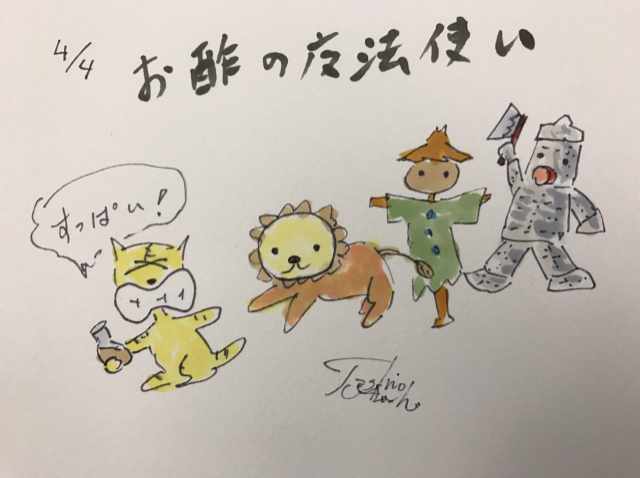 4/4
お酢の友法使い
すっぱい!